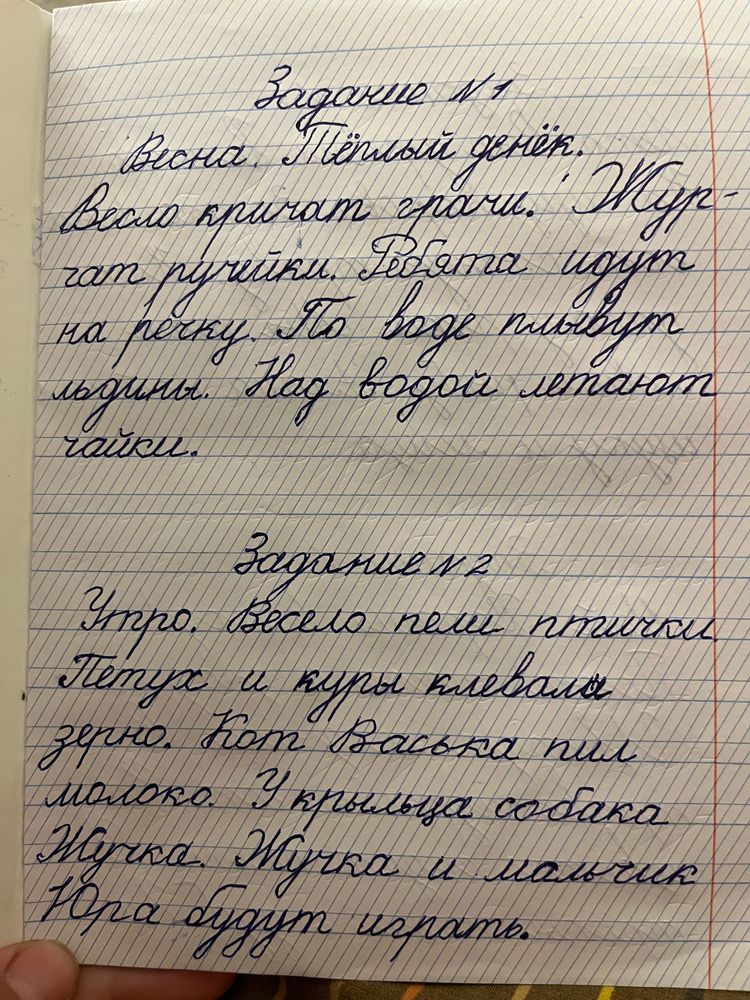 Задание №1
Весна. Тёплый денёк.
Весло кричат грачи. Жур-
чат ручейки. Ребята идут
на речку. По воде плывут
льдины. Над водой летают
чайки.
Задание №2
Утро. Весело пели птички.
Петух и куры клевали
зерно. Кот Васька пил
молоко. У крыльца собака
Жучка. Жучка и мальчик
Юра будут играть.